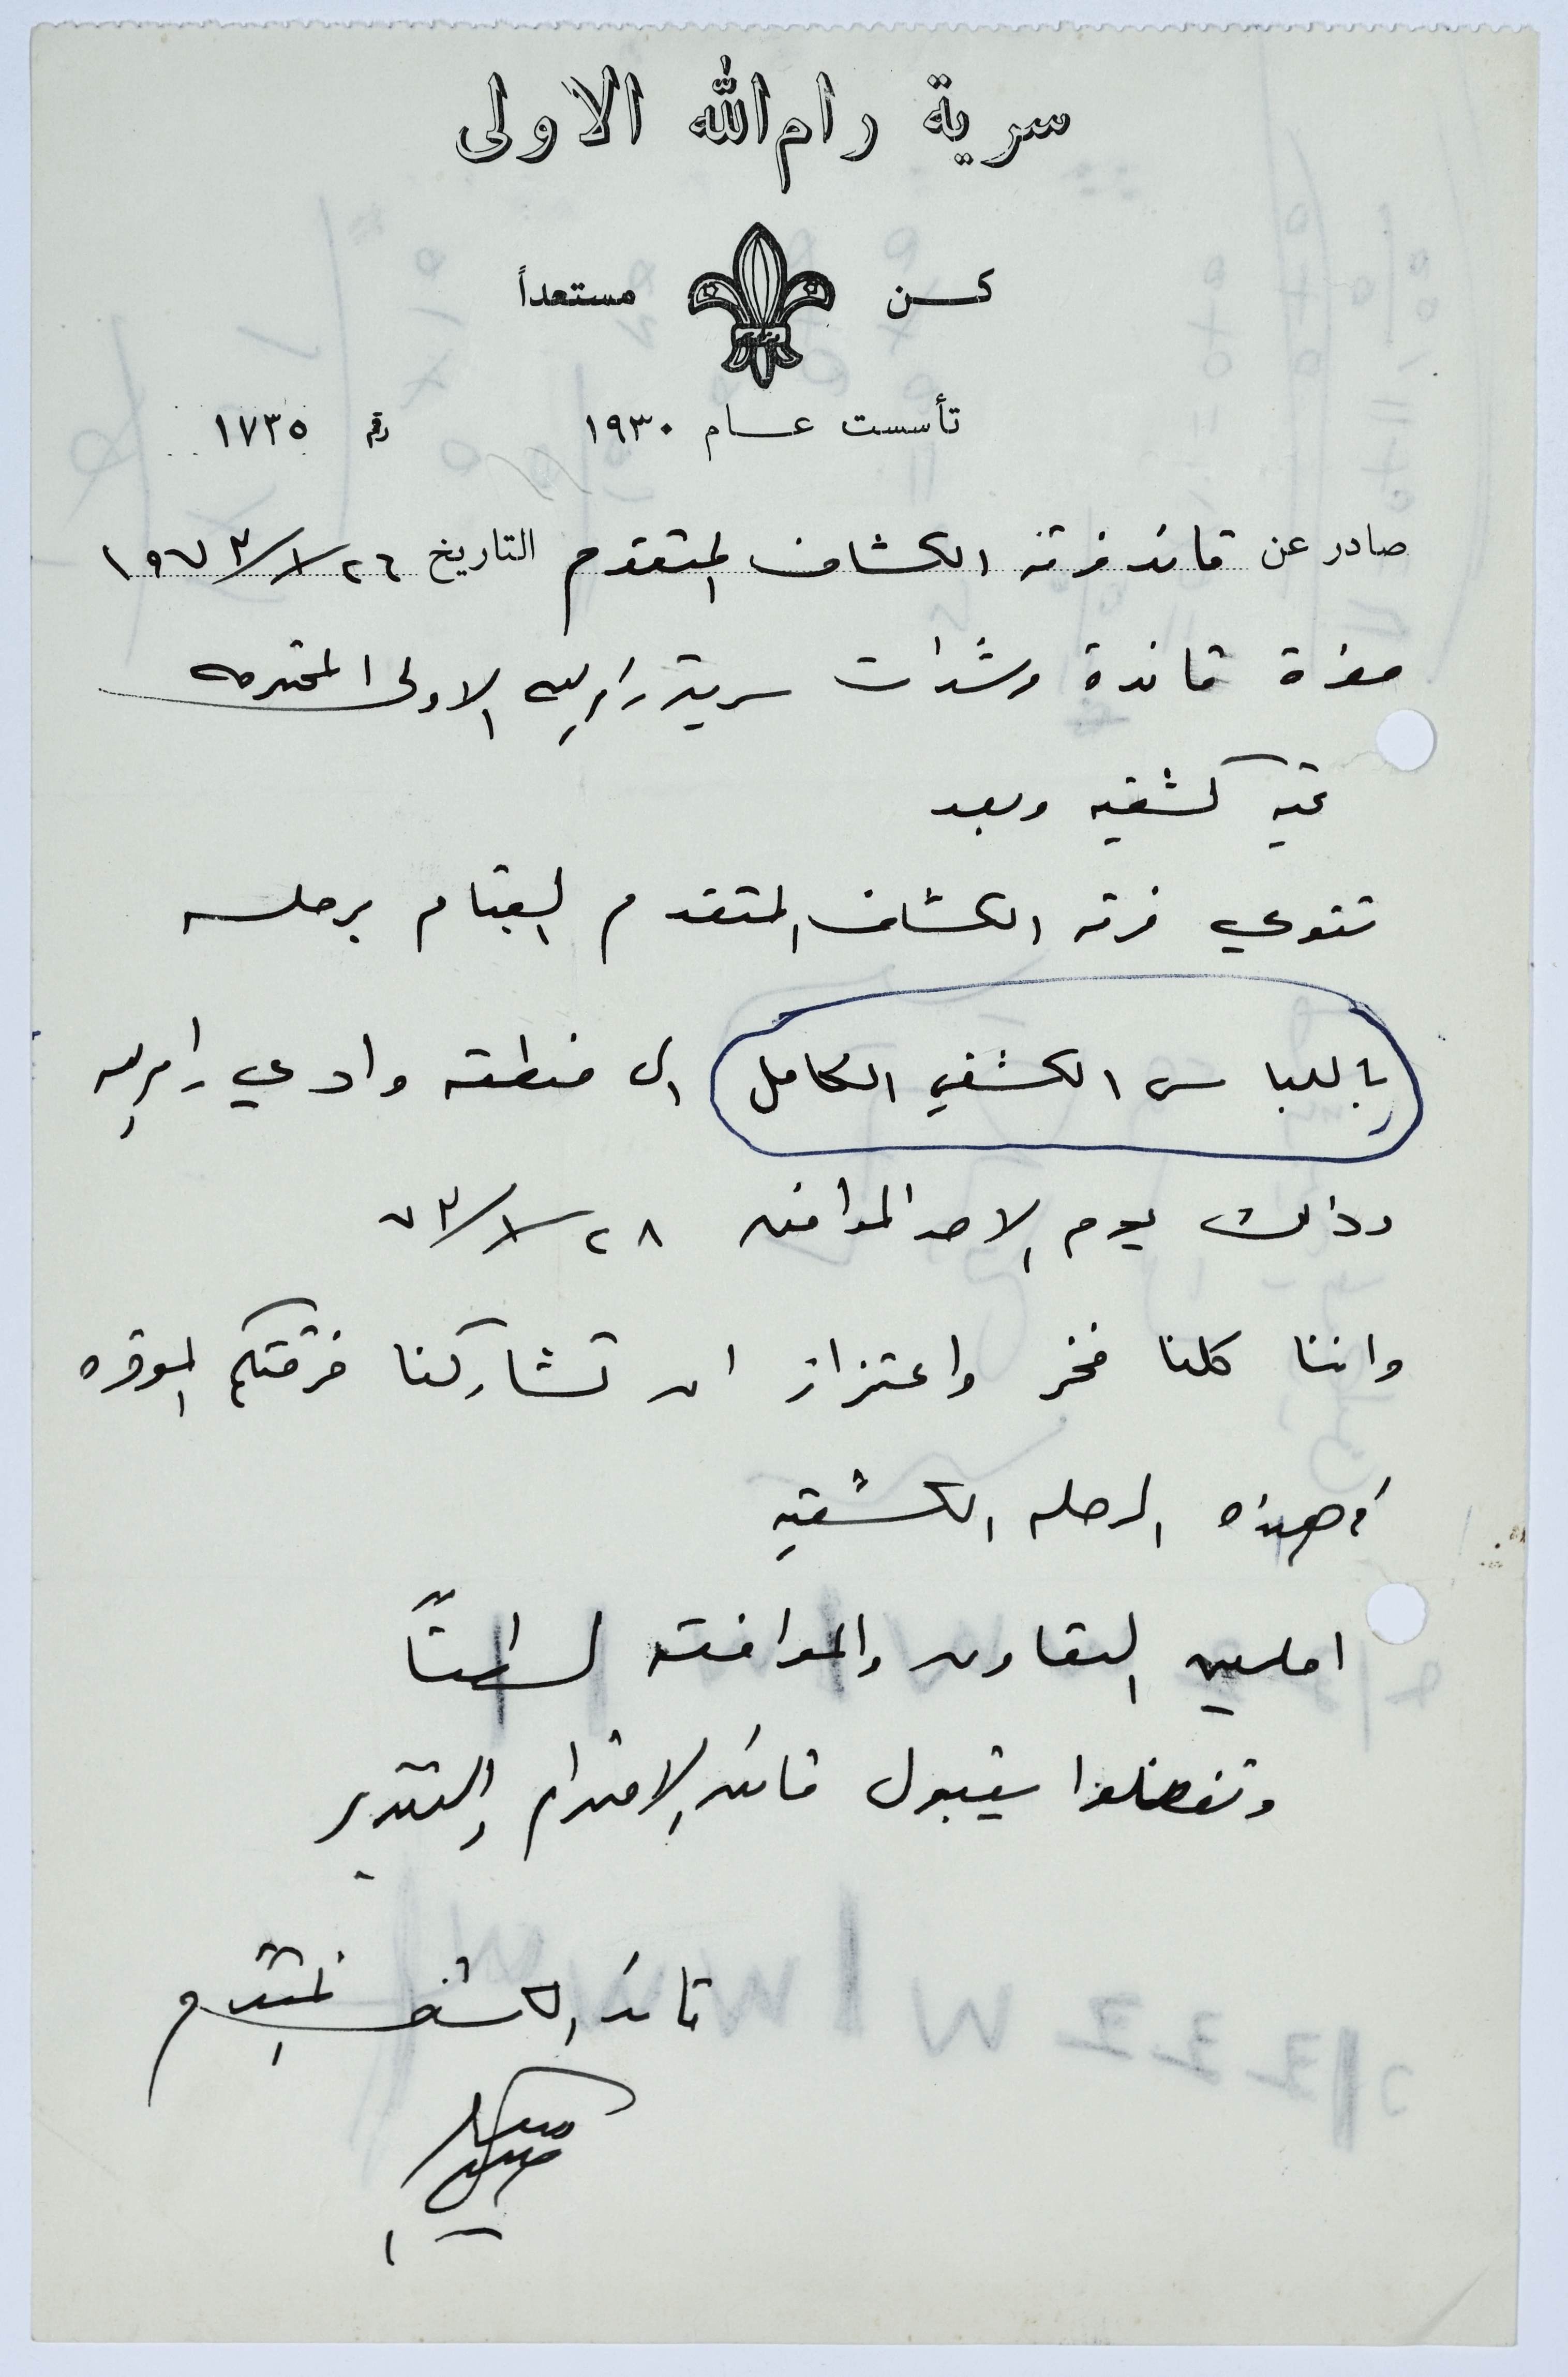 سرية رام الله الاولى
كن مستعداً
تأسست عام ١٩٣٠ رقم ١٧٣٥
صادر عن قائد فرقة الكشاف المتقدم التاريخ ٢٦/١/١٩٧٣
حضرة قائدة مرشدات سرية رام الله الاولى المحترمه
تحيه كشفيه وبعد
تنوي فرقه الكشاف المتقدم القيام برحله
باللباس الكشفي الكامل الى منطقه وادي رام الله
وذلك يوم الاحد الموافق ٢٨/١/٧٣
واننا كلنا فخر واعتزاز ان تشاركنا فرقتكم الموقره
في هذه الرحله الكشفيه
املين التعاون والموافقه
وتفضلوا بقبول فائق الاحترام والتقدير
قائد الكشاف المتقدم